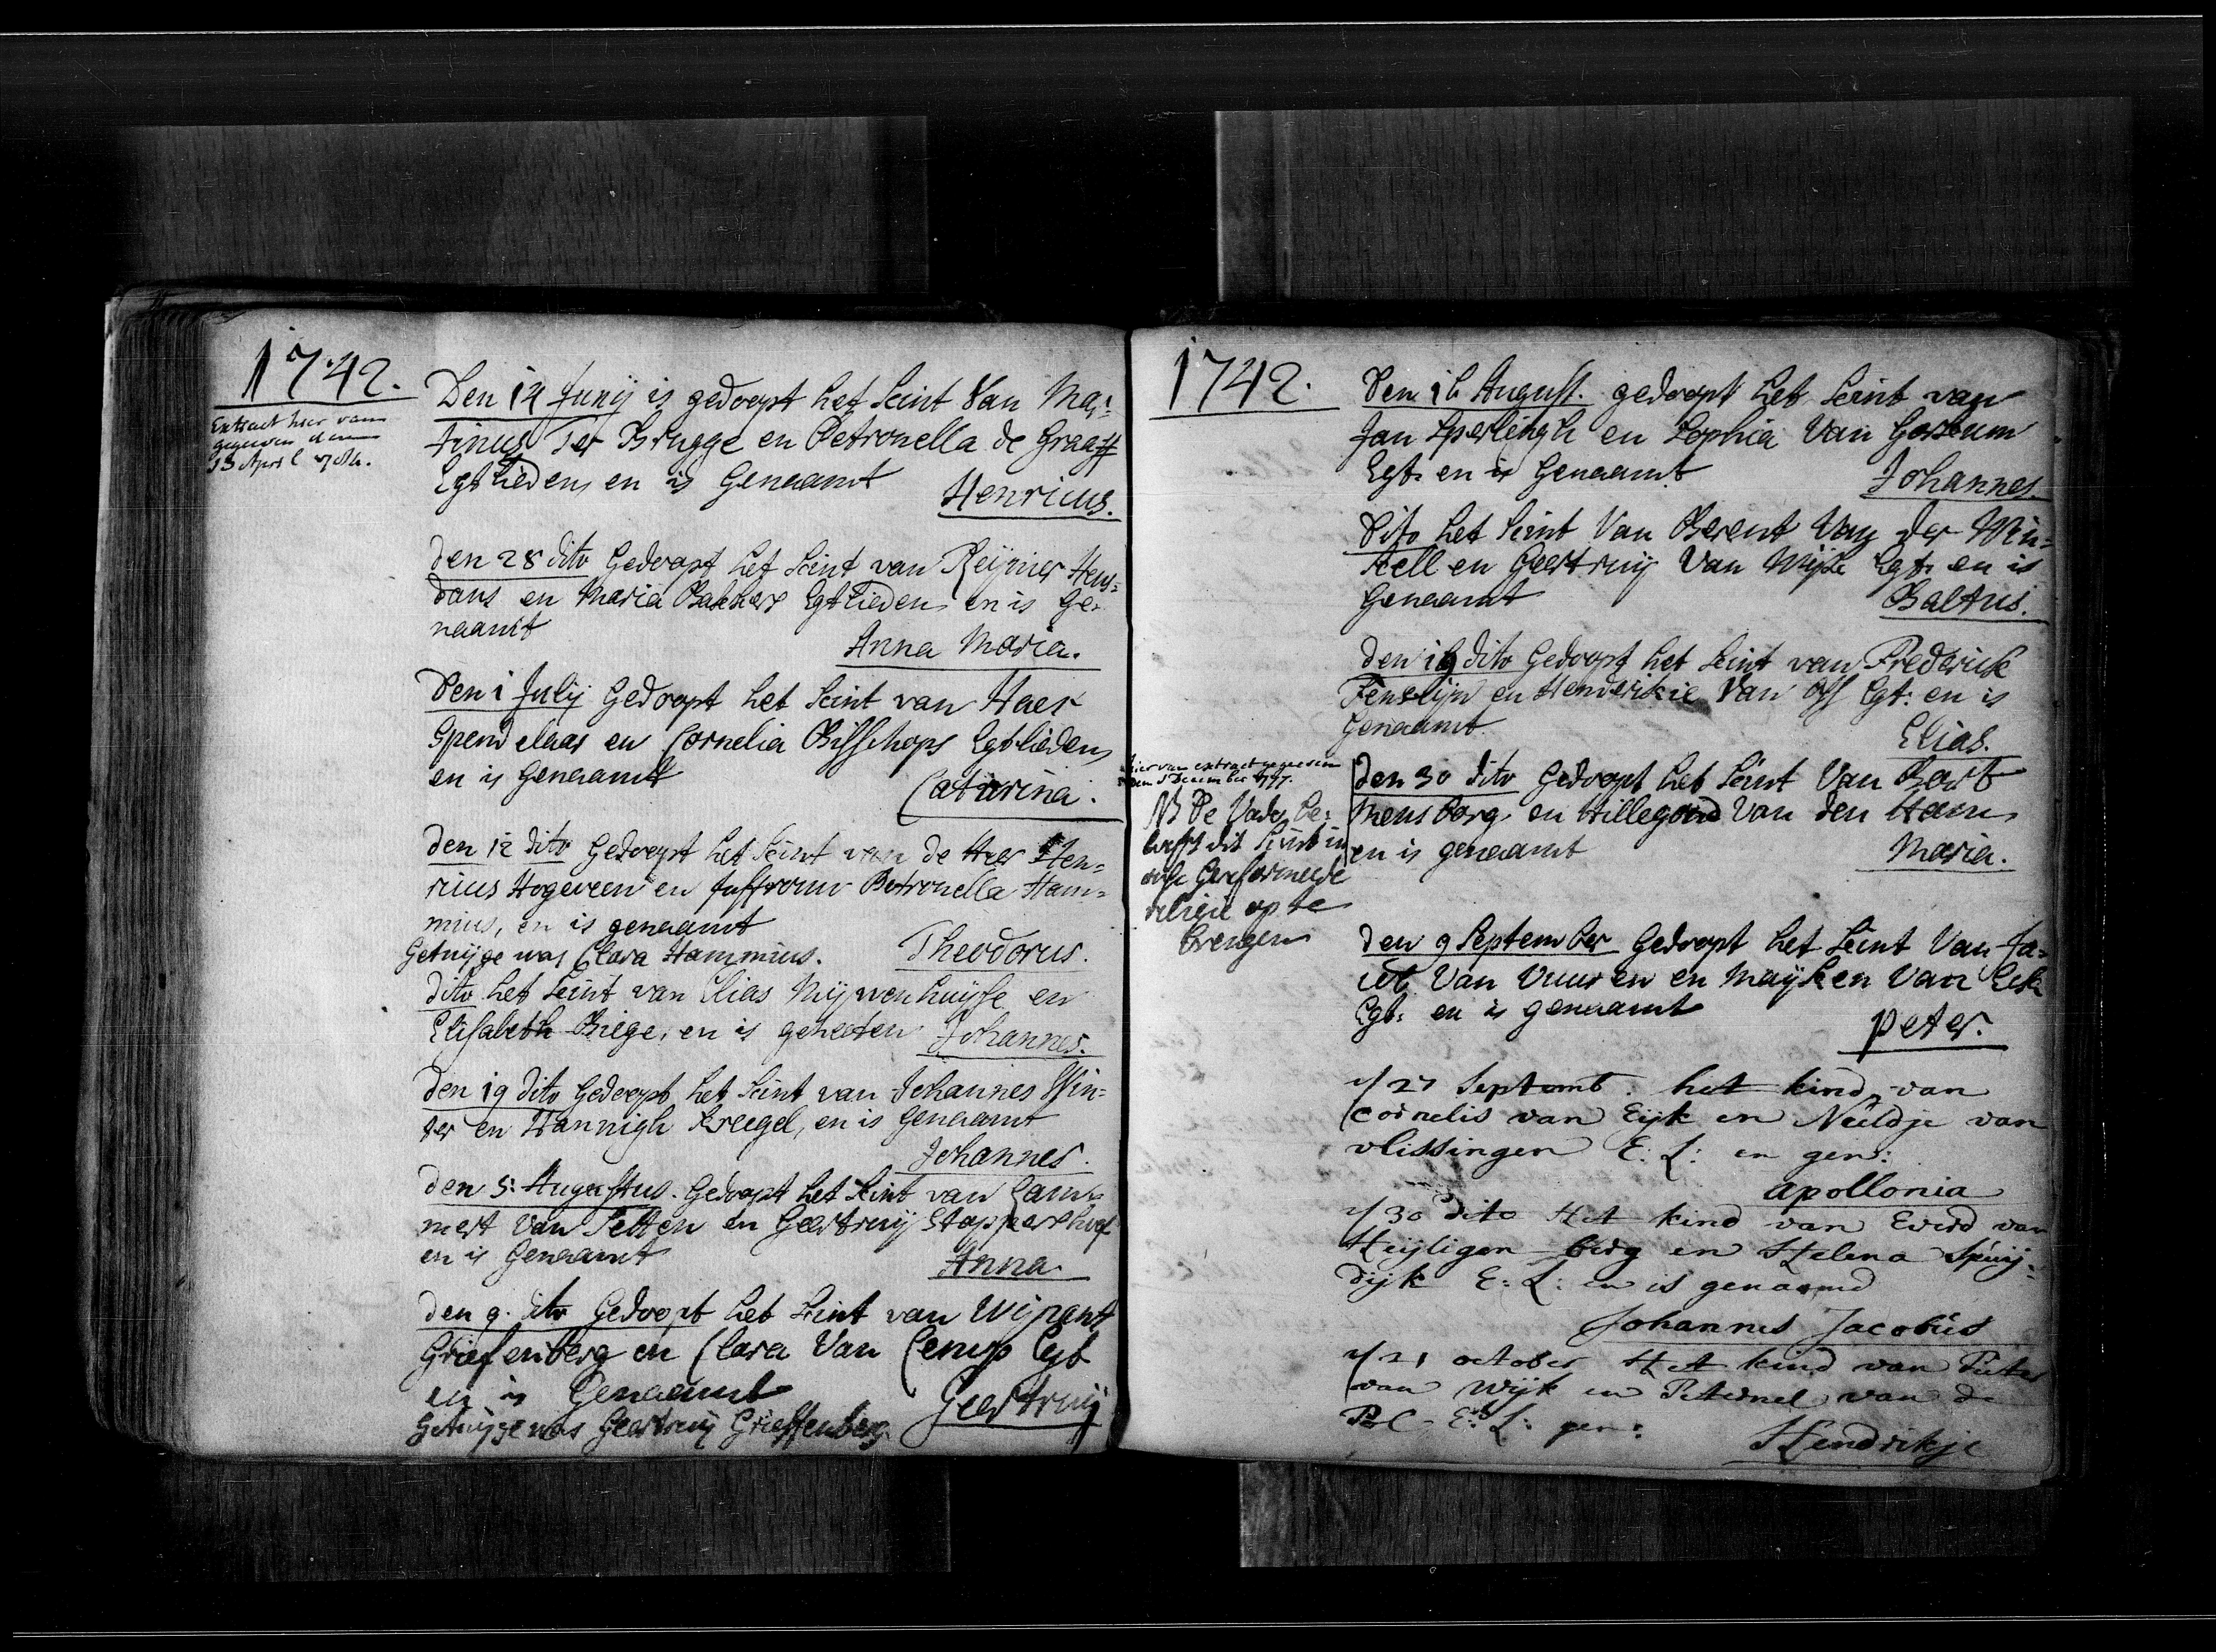 1742.
Extract hier van
gegeven den
13 April
Den 14 Junij is gedoopt het kint Van Mar:
tinus Ter Brugge en Petronella de Graaff
Egtlieden, en is Genaamt
Henricus.
den 28 dito Gedoopt het kint van Reijnier Hens=
dans en Maria Bakker Egtlieden en is Ge=
naamt
Anna Maria.
Den 1 Julij Gedoopt het kint van Haer
Spendelaar en Cornelia Bisschops Egtlieden,
en is Genaamt
Catarina.
den 12 dito Gedoopt het kint van de Heer Hen=
ricus Hogeveen en Juffrouw Petronella Ham=
mius, en is genaamt
Getuijge was Clara Hammius.
Theodorus.
dito het kint van Elias Nijwenhuijse en
Elisabeth Biege, en is geheeten Johannes.
den 19 dito Gedoopt het kint van Johannes Win=
ter en Hannigh Kreegel, en is Genaamt
Johannes.
den 5. Augustus. Gedoopt het kint van Lam=
mert Van Petten en Geertruij Stappershoef
en is Genaamt
Anna.
den 9. dito Gedoopt het kint van Wijnant
Griefenberg en Clara Van Cemp Egt
en is Genaamt
Geertruij
Getuijge was Geertruij Grieffenberg.
1742.
Den 16 August. gedoopt het kint van
Jan Sperlingh en Sophia Van Gorkum
Egt. en is Genaamt
Johannes.
Dito het kint Van Berent Van der Win=
kell en Geertruij Van Wijk Egt. en is
Genaamt
Baltus.
den 19 dito Gedoopt het kint van Frederick
Fenelijn en Henderikie Van Oss Egt: en is
Genaamt.
Elias.
hier van extract gegeven
den 5 December 1797.
NB De Vader be:
looft dit kint in
onse Gereformeerde
religie op te
brengen
den 30 dito Gedoopt het kint Van Bart
Mensborg, en Hillegond Van den Ham,
en is genaamt
Maria.
den 9 September Gedoopt het kint Van Ja=
cob Van Vuuren en Mayken Van Eck
Egt: en is genaamt
Peter.
27 Septemb. het kind van
Cornelis van Eijk en Neeldje van
vlissingen E: L: en gen:
apollonia
30 dito Het kind van Everd van
Heijligenberg en Helena Spruij=
dijk E: L: en is genaamd
Johannes Jacobus
21 october Het kind van Pieter
van Wijk en Peternel van de
Pol E: L: gen:
Hendrikje